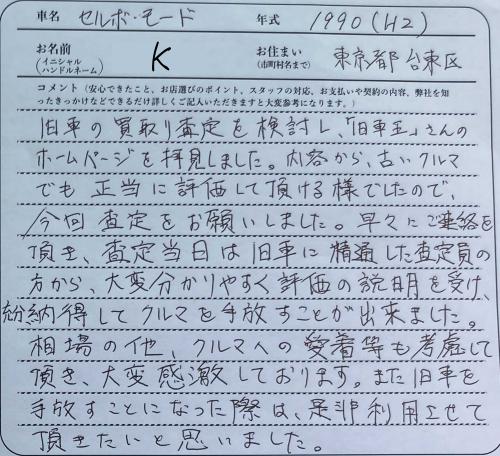 車名 セルボ・モード 年式 1990(H2)
お名前 (イニシャル ハンドルネーム) K お住まい (市町村名まで) 東京都台東区
コメント(安心できたこと、お店選びのポイント、スタッフの対応、お支払いや契約の内容、弊社を知
ったきっかけなどできるだけ詳しくご記入いただきますと大変参考になります。)
旧車の買取り査定を検討し、「旧車王」さんの
ホームページを拝見しました。内容から、古いクルマ
でも正当に評価して頂ける様でしたので、
今回査定をお願いしました。早々にご連絡を
頂き、査定当日は旧車に精通した査定員の
方から、大変分かりやすく評価の説明を受け、
充分納得してクルマを手放すことが出来ました。
相場の他、クルマへの愛着等も考慮して
頂き、大変感激しております。また旧車を
手放すことになった際は、是非利用させて
頂きたいと思いました。